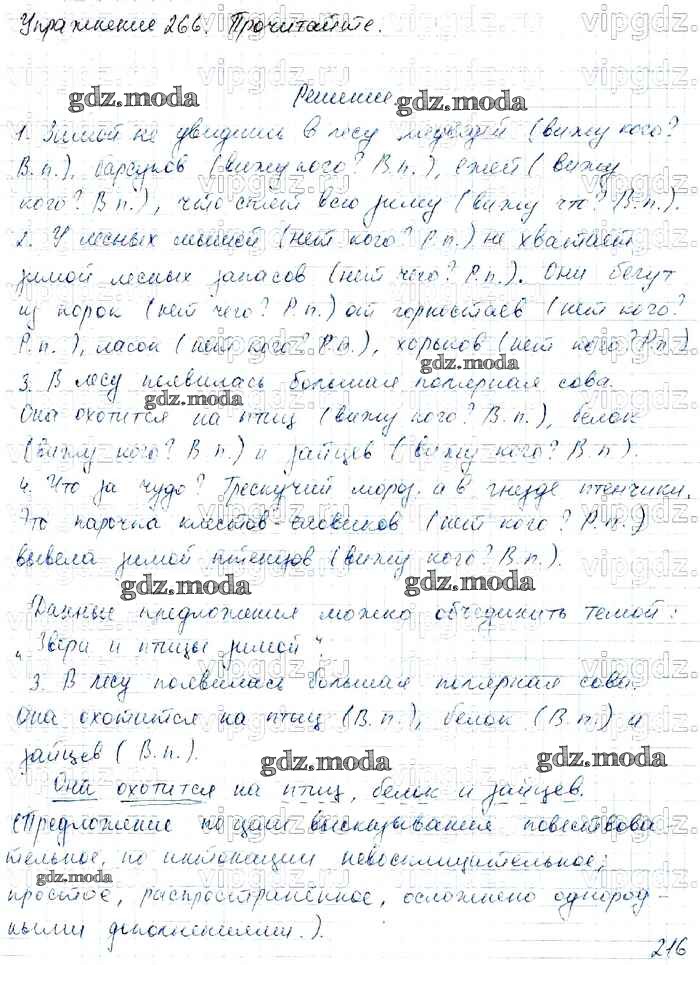 Упражнение 266. Прочитайте.
gdz.moda Решение. gdz.moda
1. Зимой не увидишь в лесу медведей (вижу кого?
В.п.), барсуков (вижу кого? В.п.), ежей (вижу
кого? В.п.), что спят всю зиму (вижу что? В.п.).
2. У лесных мышей (нет кого? Р.п.) не хватает
зимой лесных запасов (нет чего? Р.п.). Они бегут
из норок (нет чего? Р.п.) от горностаев (нет кого?
Р.п.), ласок (нет кого? Р.п.), хорьков (нет кого? Р.п.)
gdz.moda
3. В лесу появилась большая полярная сова.
gdz.moda
Она охотится на птиц (вижу кого? В.п.), белок
(вижу кого? В.п.) и зайцев (вижу кого? В.п.).
4. Что за чудо? Трескучий мороз. а в гнезде птенчики.
Это парочка клестов-еловиков (нет кого? Р.п.)
вывела зимой птенцов (вижу кого? В.п.).
gdz.moda gdz.moda
Данные предложения можно объединить темой:
„Звери и птицы зимой".
3. В лесу появилась большая полярная сова.
Она охотится на птиц (В.п.), белок (В.п.) и
зайцев (В.п.).
gdz.moda gdz.moda
Она охотится на птиц, белок и зайцев.
(Предложение по цели высказывания повествова-
тельное, по интонации невосклицательное,
gdz.moda
простое, распространённое, осложнено однород-
ными дополнениями.).
216